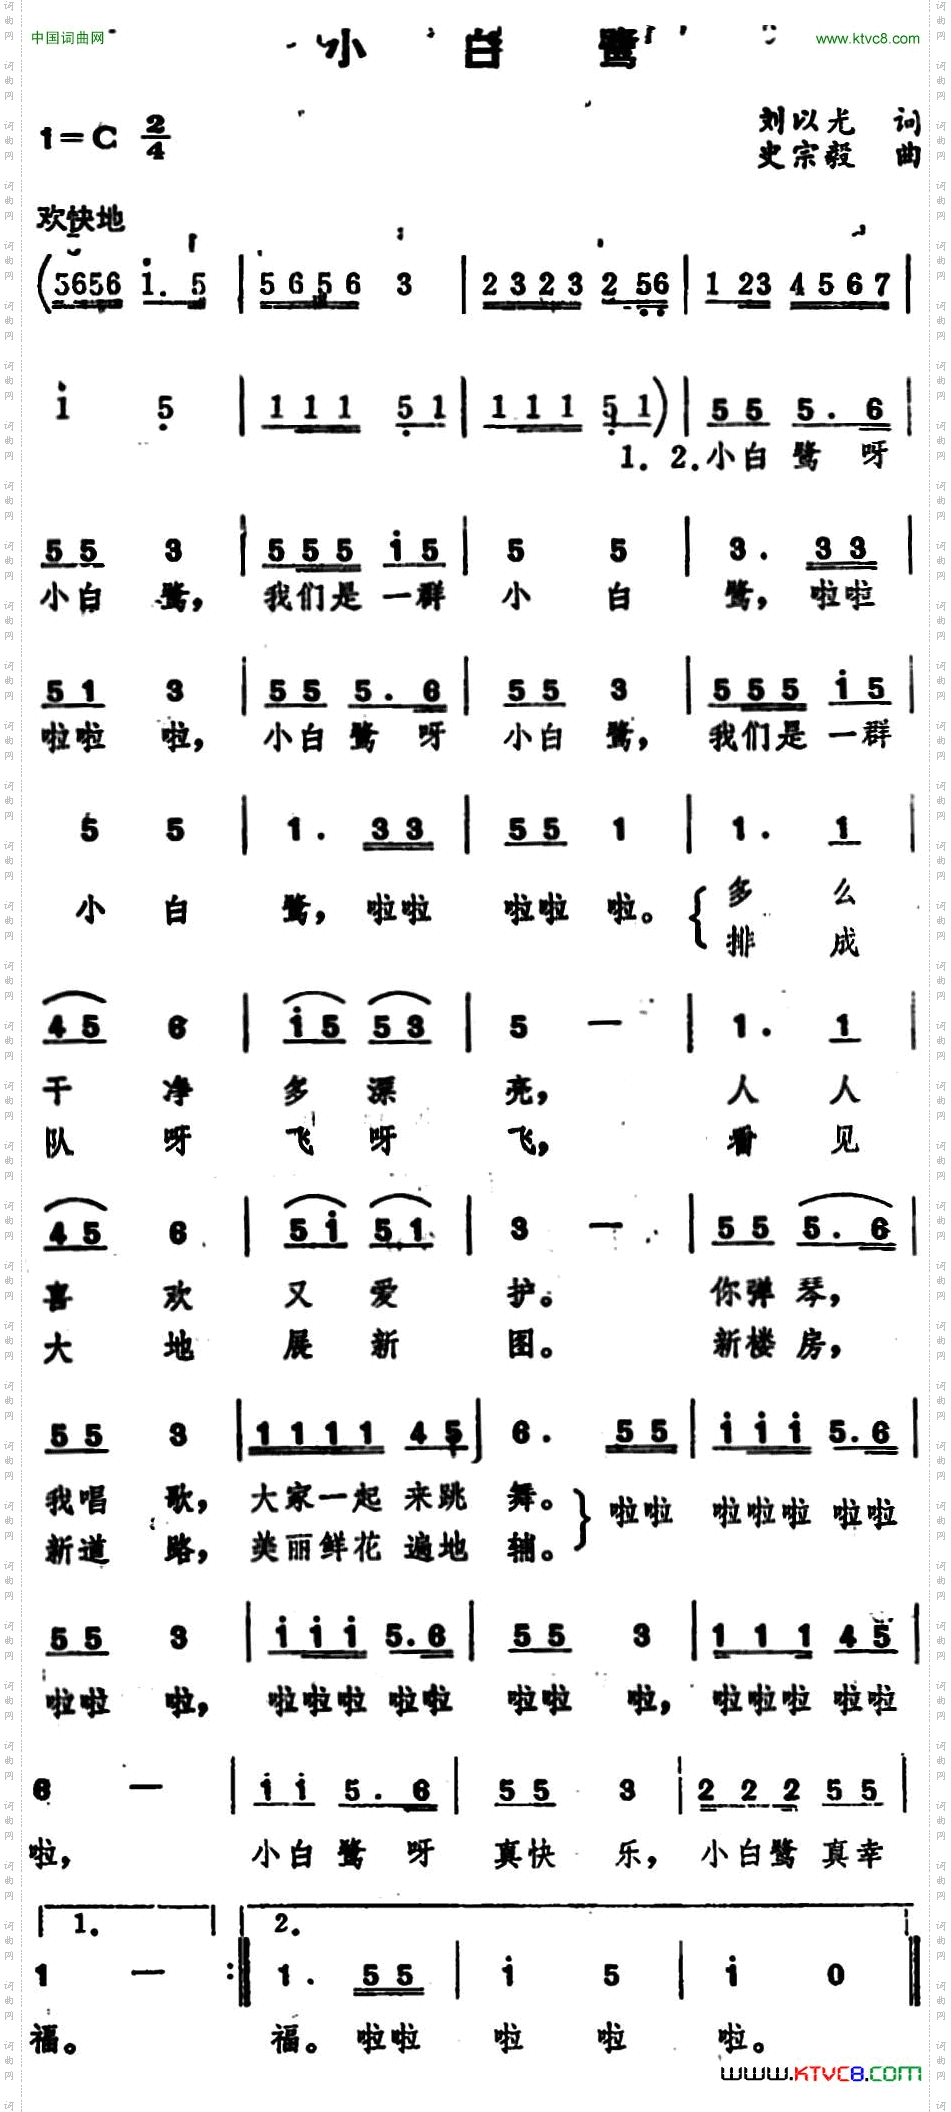 中国词曲网
小白鹭
www.ktvc8.com
1=C 2/4
刘以光 词
史宗毅 曲
欢快地
(5656 i. 5 | 5656 3 | 2323 2 56 | 1 23 4567 |
i 5 | 111 51 | 111 51) | 55 5. 6 |
1. 2.小白 鹭 呀
55 3 | 555 i5 | 5 5 | 3. 33 |
小白 鹭, 我们是 一群 小 白 鹭, 啦啦
51 3 | 55 5. 6 | 55 3 | 555 i5 |
啦啦 啦, 小白 鹭 呀 小白 鹭, 我们是 一群
5 5 | 1. 33 | 55 1 | 1. 1 |
小 白 鹭, 啦啦 啦啦 啦。 多 么
排 成
45 6 | i5 53 | 5 — | 1. 1 |
干 净 多 漂 亮, 人 人
队 呀 飞 呀 飞, 看 见
45 6 | 5i 51 | 3 — | 55 5. 6 |
喜 欢 又 爱 护。 你弹 琴,
大 地 展 新 图。 新楼 房,
55 3 | 1111 45 | 6. 55 | iii 5.6 |
我唱 歌, 大家一起 来跳 舞。 啦啦 啦啦啦 啦啦
新道 路, 美丽鲜花 遍地 铺。
55 3 | iii 5.6 | 55 3 | 111 45 |
啦啦 啦, 啦啦啦 啦啦 啦啦 啦, 啦啦啦 啦啦
6 — | ii 5. 6 | 55 3 | 222 55 |
啦, 小白 鹭 呀 真快 乐, 小白鹭 真幸
1. 2.
1 — :‖ 1. 55 | i 5 | i 0 ‖
福。 福。 啦啦 啦 啦 啦。
www.KTVC8.COM